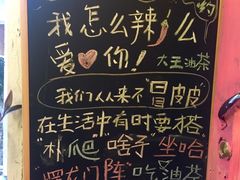 约
我怎么辣么
爱你!
大王油茶
我们人人来不"冒皮皮"
在生活中有时要搭
"朴爬""啥子"坐哈
"罢龙门阵"吃油茶